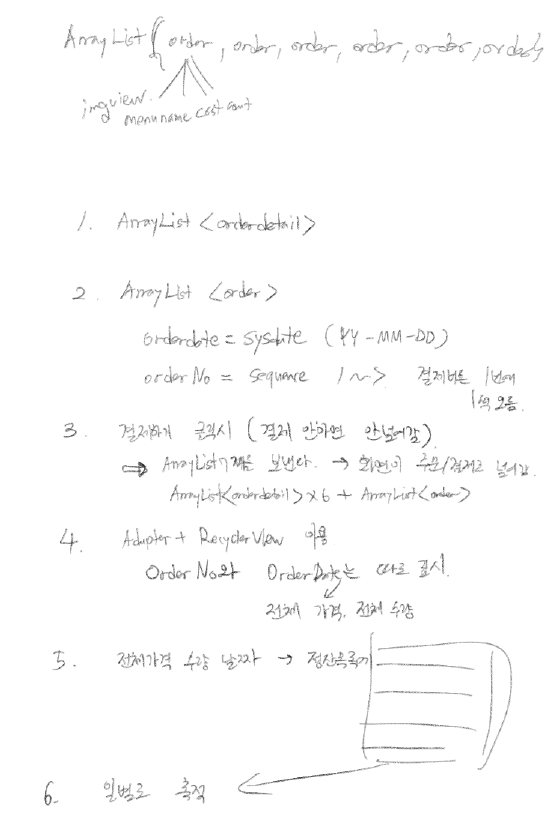 ArrayList { order, order, order, order, order, order }
imgview menuname cost cont
1. ArrayList <orderdetail>
2. ArrayList <order>
orderdate = sysdate (YY-MM-DD)
orderNo = sequance 1~> 결제버튼 1번에
1씩 오름.
3. 결제하기 클릭시 (결제 안하면 안넘어감)
⇒ ArrayList 7개을 보낸다. → 화면이 주문/결제로 넘어감.
ArrayList<orderdetail>×6 + ArrayList<order>
4. Adapter + RecyclerView 이용
Order No와 OrderDate는 따로 표시.
전체 가격. 전체 수량
5. 전체가격 수량 날짜 → 정산목록에
6. 일별로 축적